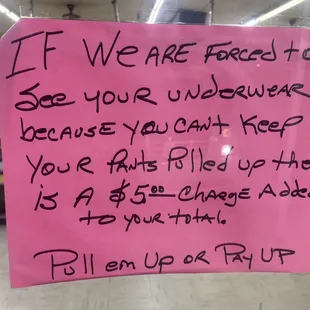 IF WE ARE FORCED TO
SEE YOUR UNDERWEAR
because YOU CAN'T KEEP
YOUR PANTS PULLED UP the
is A $5.00 CHARGE Adde
TO YOUR TOTAL
PULL em UP OR PAY UP